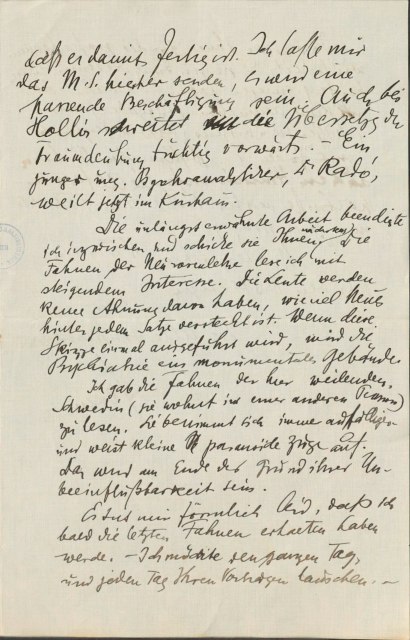 daß er damit fertig ist. Ich lasse mir
das M.S. hierher senden, es wird eine
passende Beschäftigung sein. Auch bei
Hollós schreitet die Übersetzg der
Traumdeutung tüchtig vorwärts. – Ein
junger ung. Psychoanalytiker, Dr Radó,
weilt jetzt im Kurhaus.
Die unlängst erwähnte Arbeit beendigte
ich inzwischen und schicke sie Ihnen nächstens. Die
Fahnen der Neurosenlehre lese ich mit
steigendem Interesse. Die Leute werden
keine Ahnung davon haben, wie viel Neues
hinter jedem Satze versteckt ist. Wenn diese
Skizze einmal ausgeführt wird, wird die
Psychiatrie ein monumentales Gebäude.
Ich gab die Fahnen der hier weilenden
Schwedin (sie wohnt in einer anderen Pension)
zu lesen. Sie benimmt sich immer auffälliger
und weist kleine paranoide Züge auf.
Das wird am Ende der Grund ihrer Un-
beeinflußbarkeit sein.
Es tut mir förmlich leid, daß ich
bald die letzten Fahnen erhalten haben
werde. – Ich möchte den ganzen Tag,
und jeden Tag Ihren Vorträgen lauschen. –